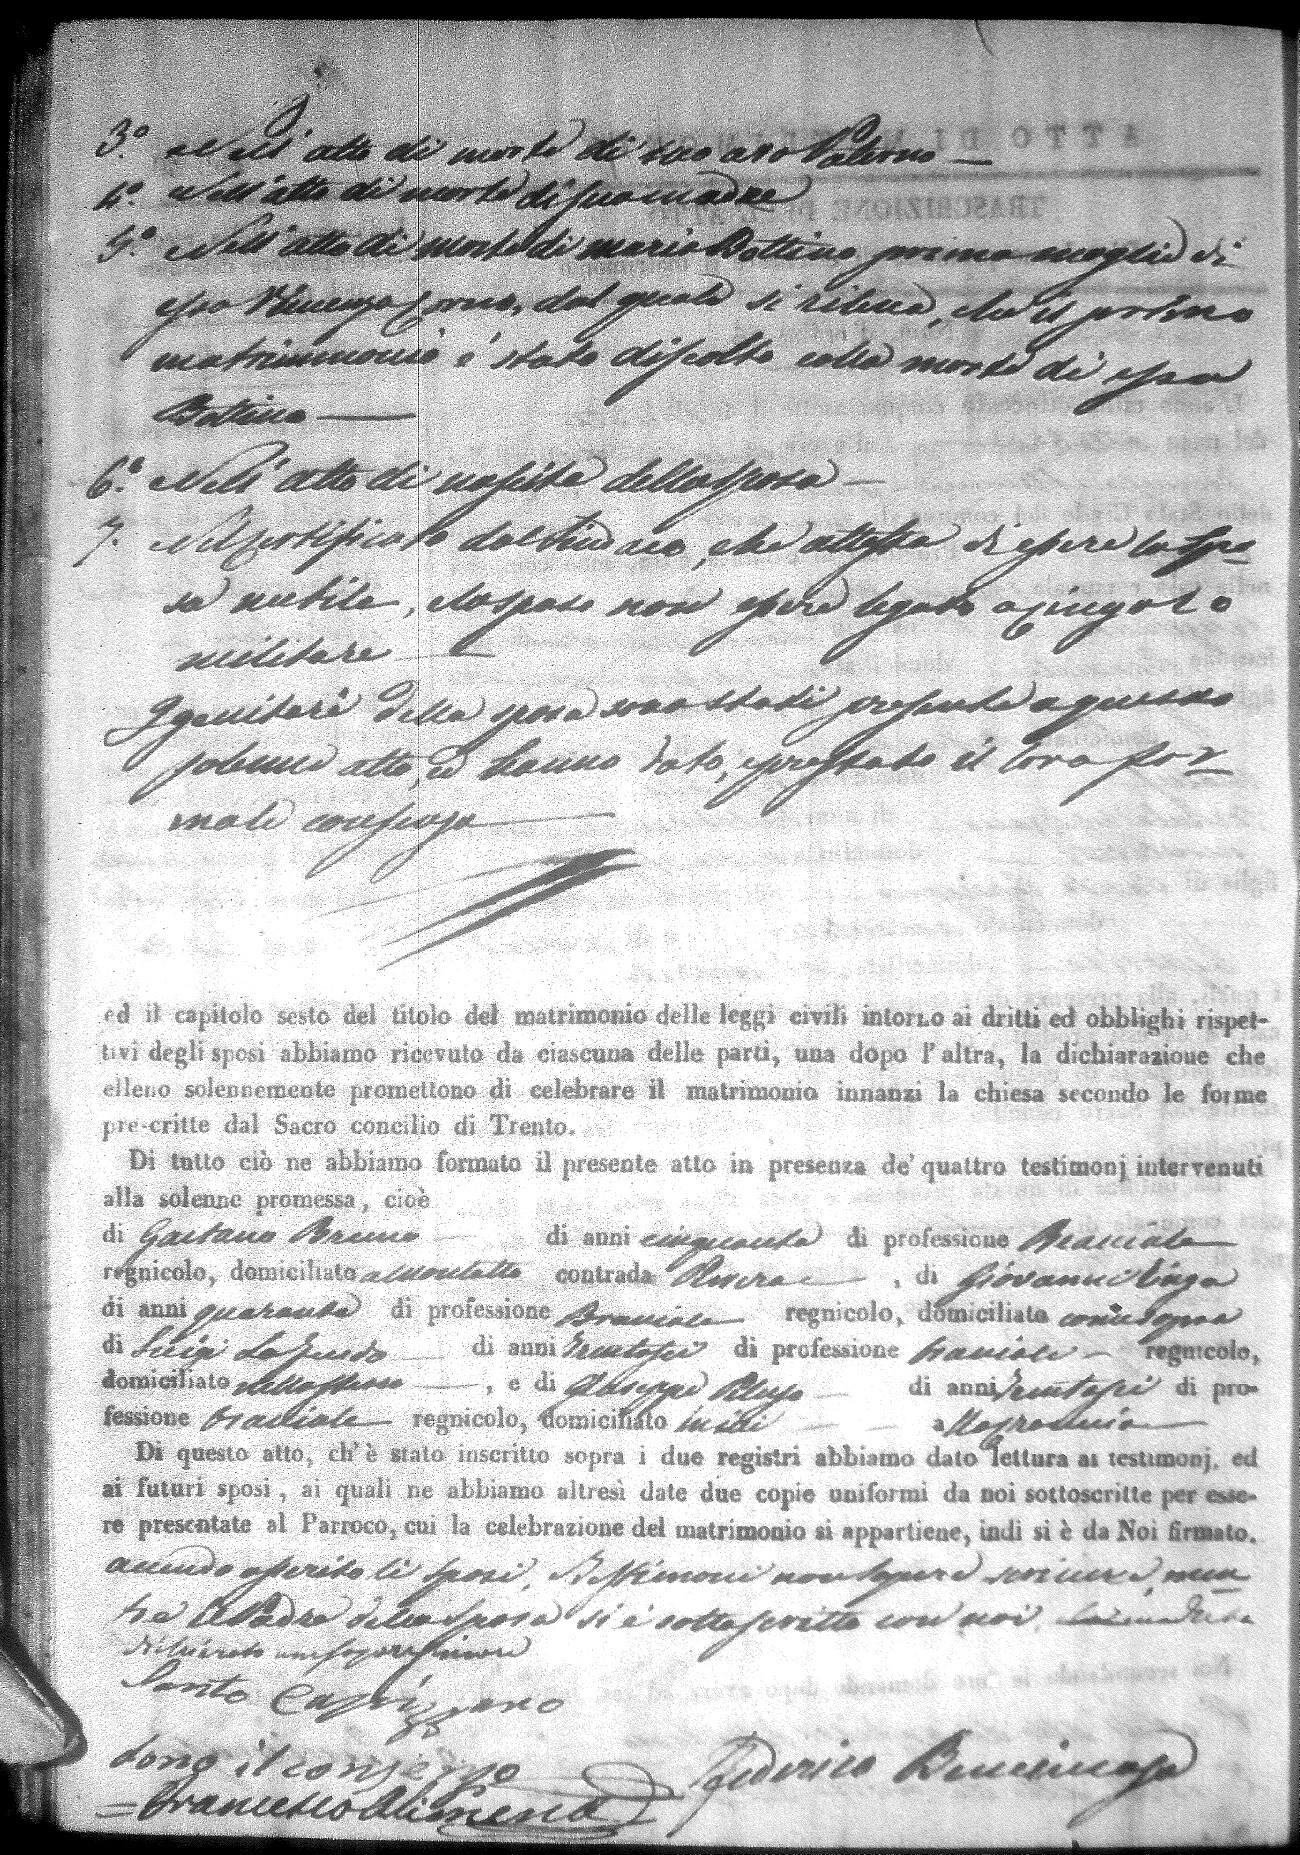 3.° Nell'atto di morte di suo avo Paterno —
4.° Nell'atto di morte di sua madre
5.° Nell'atto di morte di Maria Bottino prima moglie di
esso Vincenzo dal quale si rileva, che il primo
matrimonio è stato disciolto colla morte di essa
Bottino —
6.° Nell'atto di nascita della sposa —
7.° Nel certificato del Sindaco, che attesta di essere la spo
sa nubile, e lo sposo non essere legato a Cingolo
militare —
I genitori della sposa sono stati presenti a questo
solenne atto, ed hanno dato, e prestato il loro for
male consenso —
ed il capitolo sesto del titolo del matrimonio delle leggi civili intorno ai dritti ed obblighi rispet-
tivi degli sposi abbiamo ricevuto da ciascuna delle parti, una dopo l'altra, la dichiarazione che
elleno solennemente promettono di celebrare il matrimonio innanzi la chiesa secondo le forme
prescritte dal Sacro concilio di Trento.
Di tutto ciò ne abbiamo formato il presente atto in presenza de' quattro testimonj intervenuti
alla solenne promessa, cioè
di Gaetano Bruno — di anni cinquanta di professione Bracciale
regnicolo, domiciliato contrada , di Giovanni
di anni quaranta di professione Bracciale regnicolo, domiciliato come sopra
di Luigi di anni trentasei di professione bracciale — regnicolo,
domiciliato , e di Giuseppe di anni trentasei di pro-
fessione bracciale regnicolo, domiciliato ivi
Di questo atto, ch'è stato inscritto sopra i due registri abbiamo dato lettura ai testimonj, ed
ai futuri sposi, ai quali ne abbiamo altresì date due copie uniformi da noi sottoscritte per esse-
re presentate al Parroco, cui la celebrazione del matrimonio si appartiene, indi si è da Noi firmato.
avendo asserito li sposi, e testimoni non sapere scrivere, men
tre il Padre della sposa si è sottoscritto con noi.
Santo Caprizzano
dono il consenzo
Federico Bonincasa
= Francesco Alimena